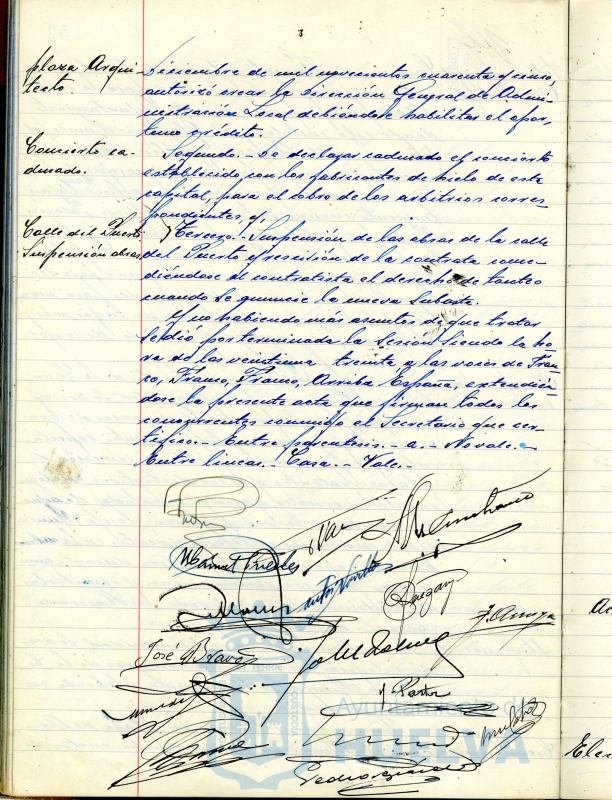 plaza Arqui-
tecto.
Diciembre de mil novecientos cuarenta y cinco,
autorizó crear la Dirección General de Admi-
nistración Local debiéndose habilitar el opor-
tuno crédito.
Concierto ca-
ducado.
Segundo.- Se declarar caducado el concierto
establecido con los fabricantes de hielo de esta
capital, para el cobro de los arbitrios corres-
pondientes, y,
Calle del Puerto
Suspensión obras
Tercero.- Suspensión de las obras de la calle
del Puerto y rescisión de la contrata conce-
diéndose al contratista el derecho de tanteo
cuando se anuncie la nueva Subasta.
Y no habiendo más asuntos de que tratar
se dió por terminada la sesión siendo la ho-
ra de las veintiuna treinta y las voces de Fran-
co, Franco, Franco, Arriba España, extendién-
dose la presente acta que firman todos los
concurrentes conmigo el Secretario que cer-
tifico.- Entre parentesis.- a.- No vale.-
Entre lineas.- Casa.- Vale.-
José Bravo
J. Amaya
Pastor
Ayuntamiento de
HUELVA